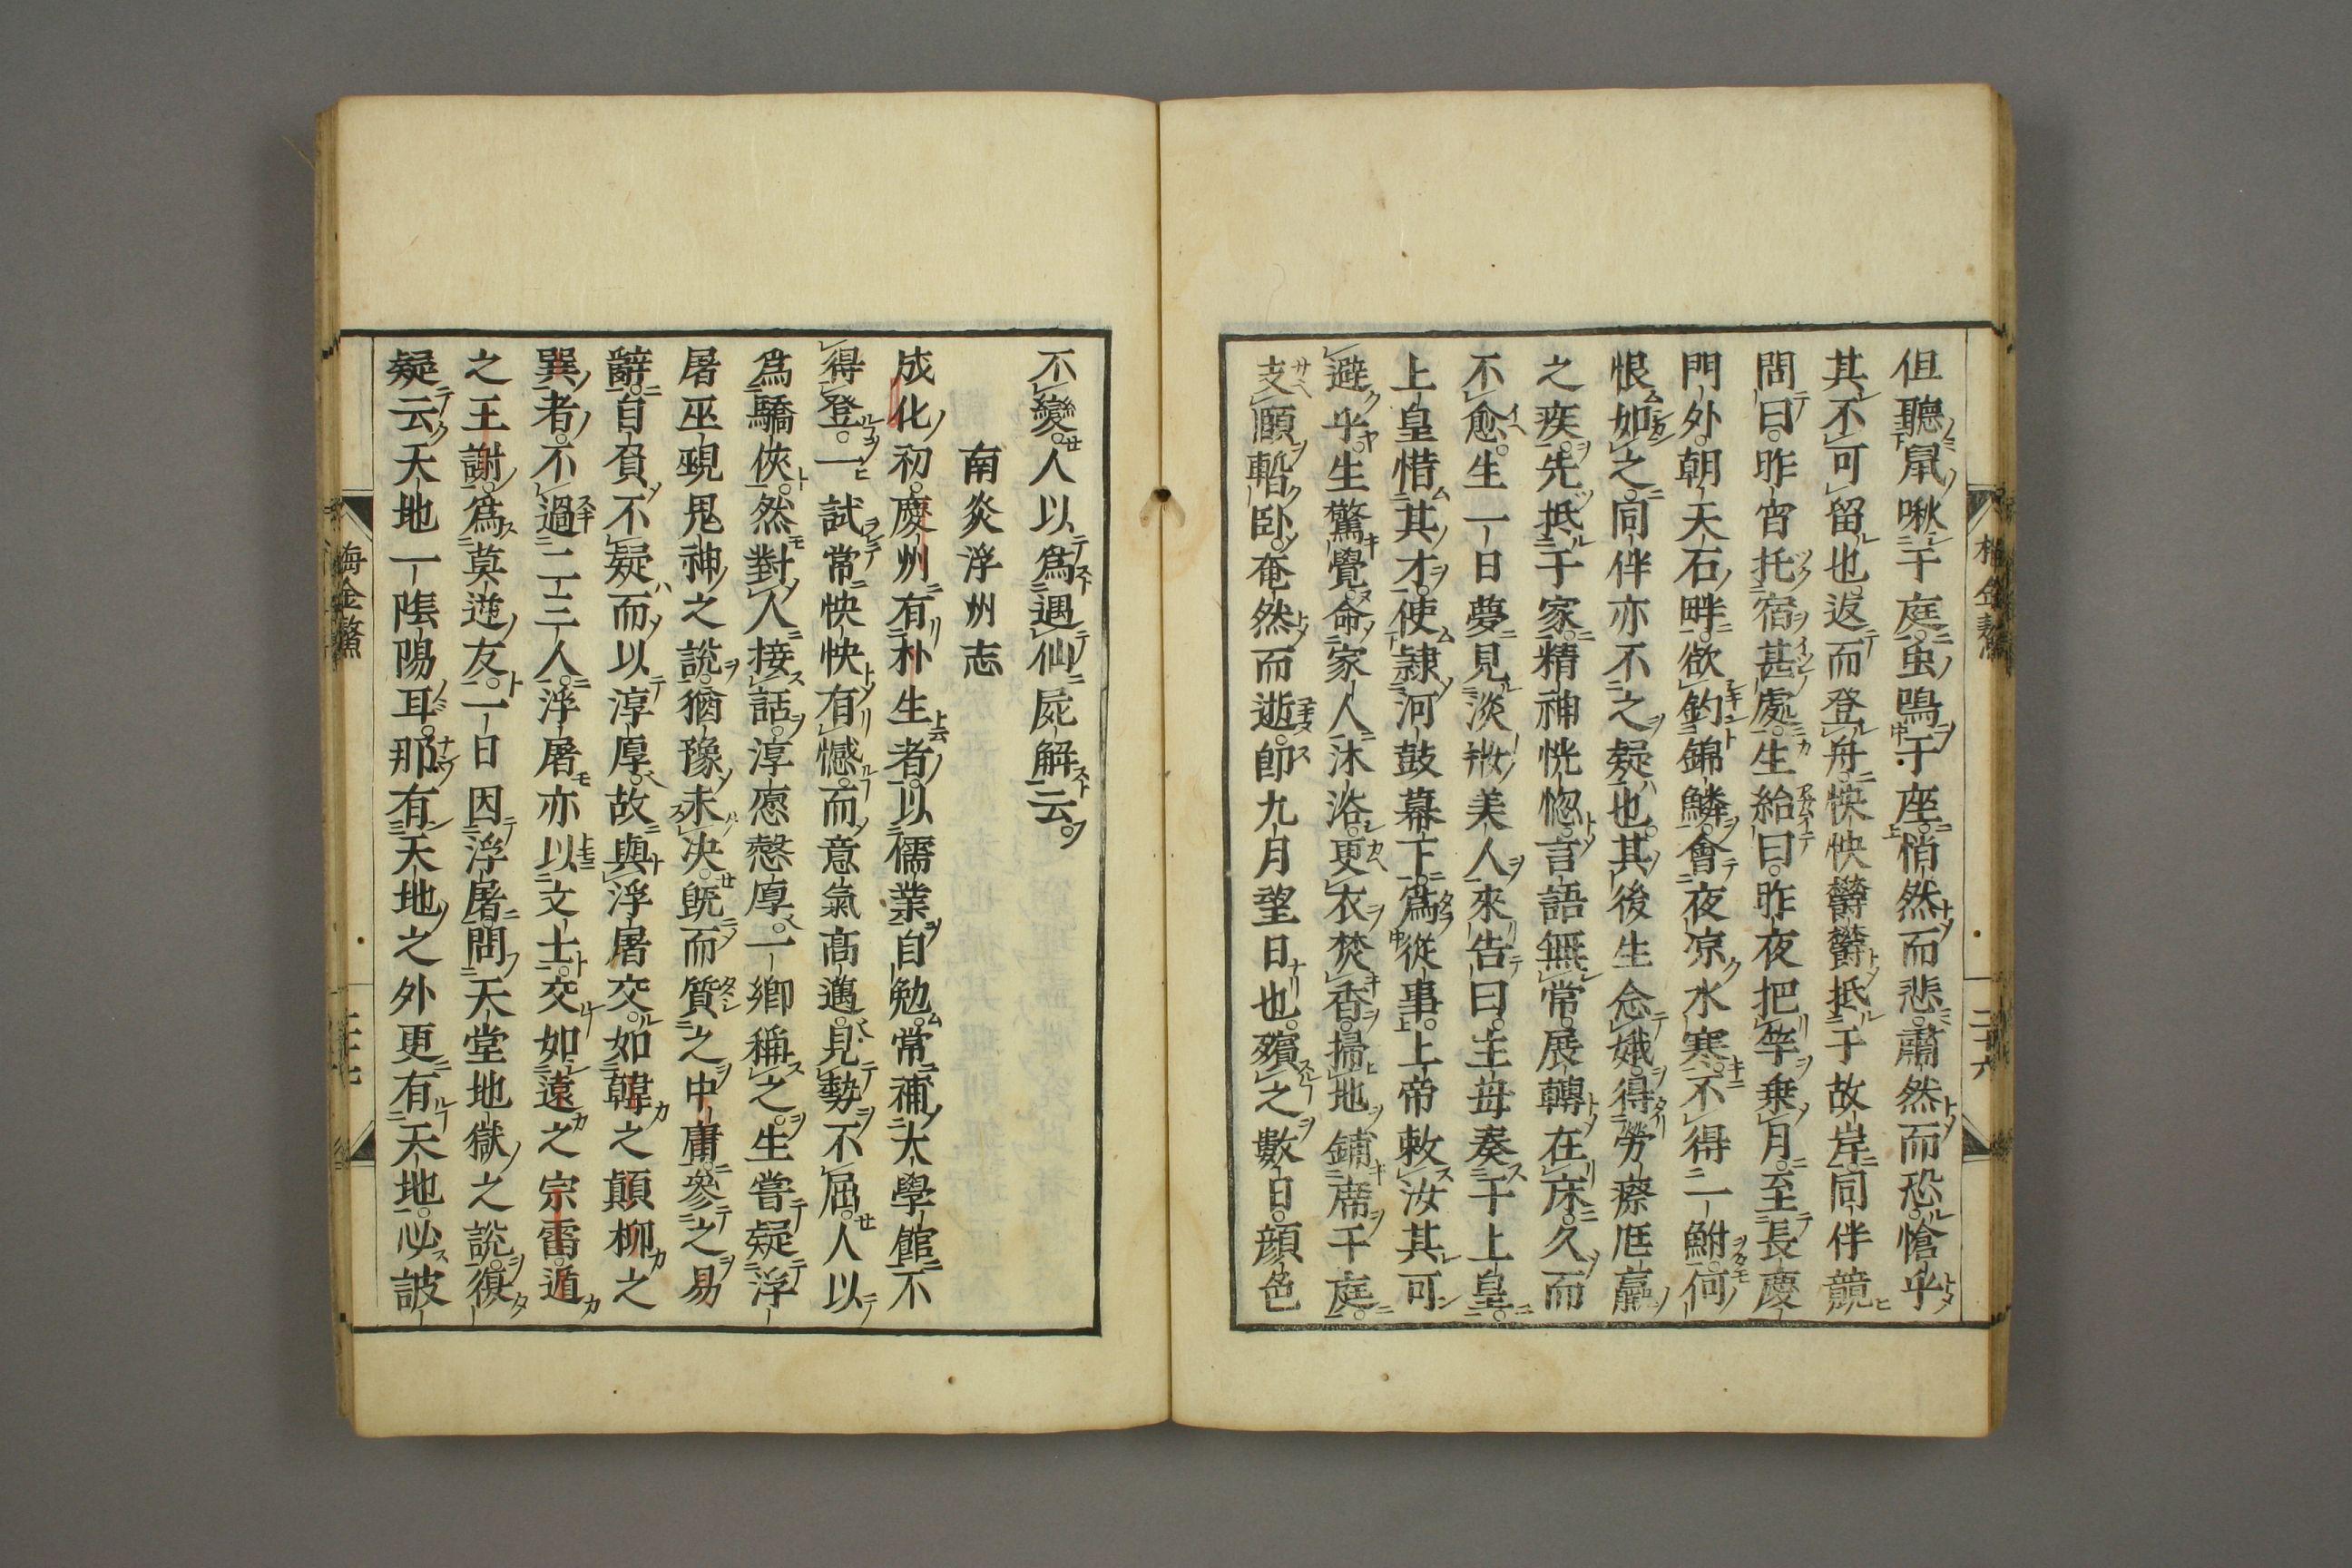 但聽鼠啾于庭虫鳴于座悄然而悲肅然而恐愴乎
其不可留也返而登舟怏怏欝欝抵于故岸同伴競
問曰昨宵托宿甚處生紿曰昨夜把竿乗月至長慶
門外朝天石畔欲釣錦鱗會夜凉水寒不得一鮒何
恨如之同伴亦不之疑也其後生念娥得勞瘵尫羸
之疾先抵于家精神恍惚言語無常展轉在床久而
不愈生一日夢見淡粧美人來告曰主母奏于上皇
上皇惜其才使隷河鼓幕下爲從事上帝敕汝其可
避乎生驚覺命家人沐浴更衣焚香掃地鋪席于庭
支頤暫卧奄然而逝即九月望日也殯之數日顔色
梅金鰲 二十六
不變人以爲遇仙屍解云
南炎浮州志
成化初慶州有朴生者以儒業自勉常補大學館不
得登一試常怏怏有憾而意氣高邁見勢不屈人以
爲驕俠然對人接話淳愿慤厚一郷稱之生嘗疑浮
屠巫覡鬼神之説猶豫未决既而質之中庸參之易
辭自負不疑而以淳厚故與浮屠交如韓之顛柳之
巽者不過二三人浮屠亦以文士交如遠之宗雷遁
之王謝爲莫逆友一日因浮屠問天堂地獄之説復
疑云天地一陰陽耳那有天地之外更有天地必詖
梅金鰲 二十七